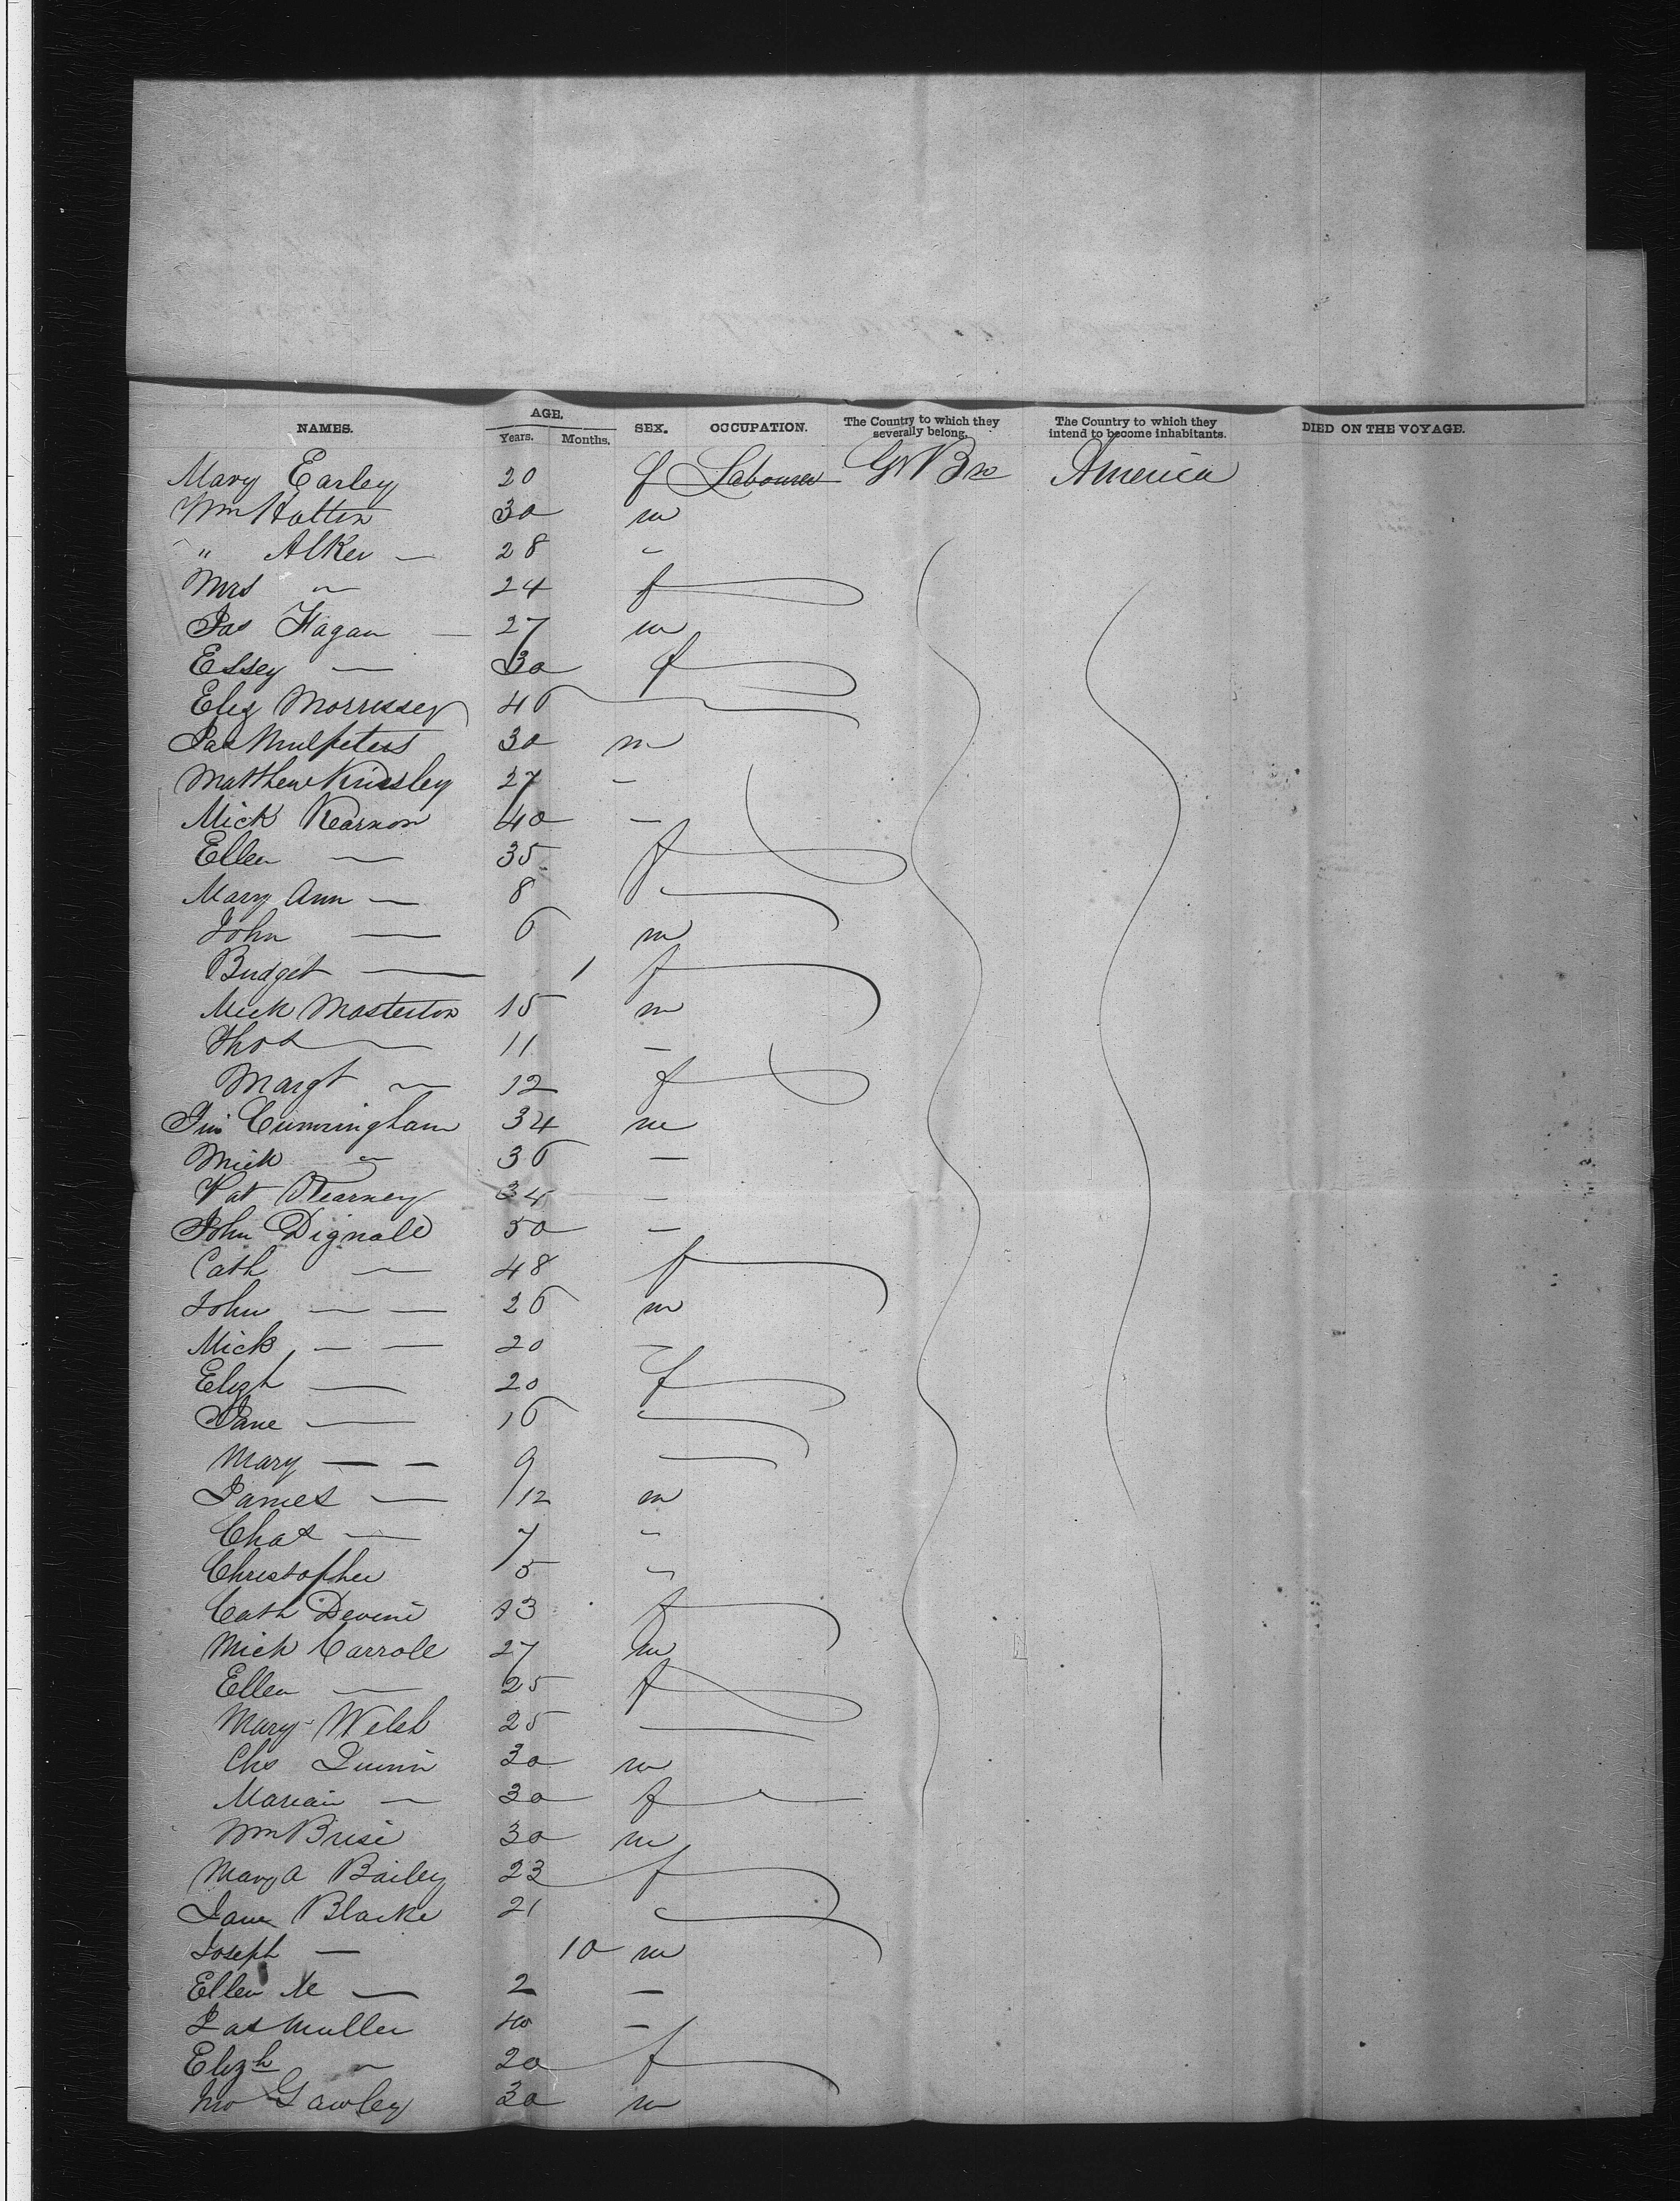 NAMES. AGE. Years. Months. SEX. OCCUPATION. The Country to which they severally belong. The Country to which they intend to become inhabitants. DIED ON THE VOYAGE.
Mary Earley 20 f Labourer Gt Bn America
Wm Hatton 30 m
" Alker — 28 -
Mrs ~ 24 f
Jas Fagan — 27 m
Essey — 30 f
Eliz Morrissey 46
Jas Mulpeters 30 m
Matthew Kinsley 27 -
Mick Kearnon 40 —
Ellen — 35 f
Mary Ann — 8
John — 6 m
Bridget — 1 f
Mick Masterton 15 m
Thos — 11 —
Margt ~ 12 f
Jim Cunningham 34 m
Mick ~ 36 —
Pat Kearney 34 —
John Dignall 50 —
Cath — 48 f
John — — 26 m
Mick — — 20 —
Elizh — 20 f
Jane — 16
Mary — — 9
James — 12 m
Chas — 7 -
Christopher 5 -
Cath Devine 13 f
Mick Carroll 27 m
Ellen — 25 f
Mary Welsh 25 —
Chs Quinn 30 m
Marian — 30 f
Wm 30 m
Mary A Bailey 23 f
Jane Blacke 21
Joseph — 10 m
Ellen — 2 —
Jas Muller 40 —
Elizh ~ 20 f
Jno Gawley 30 m